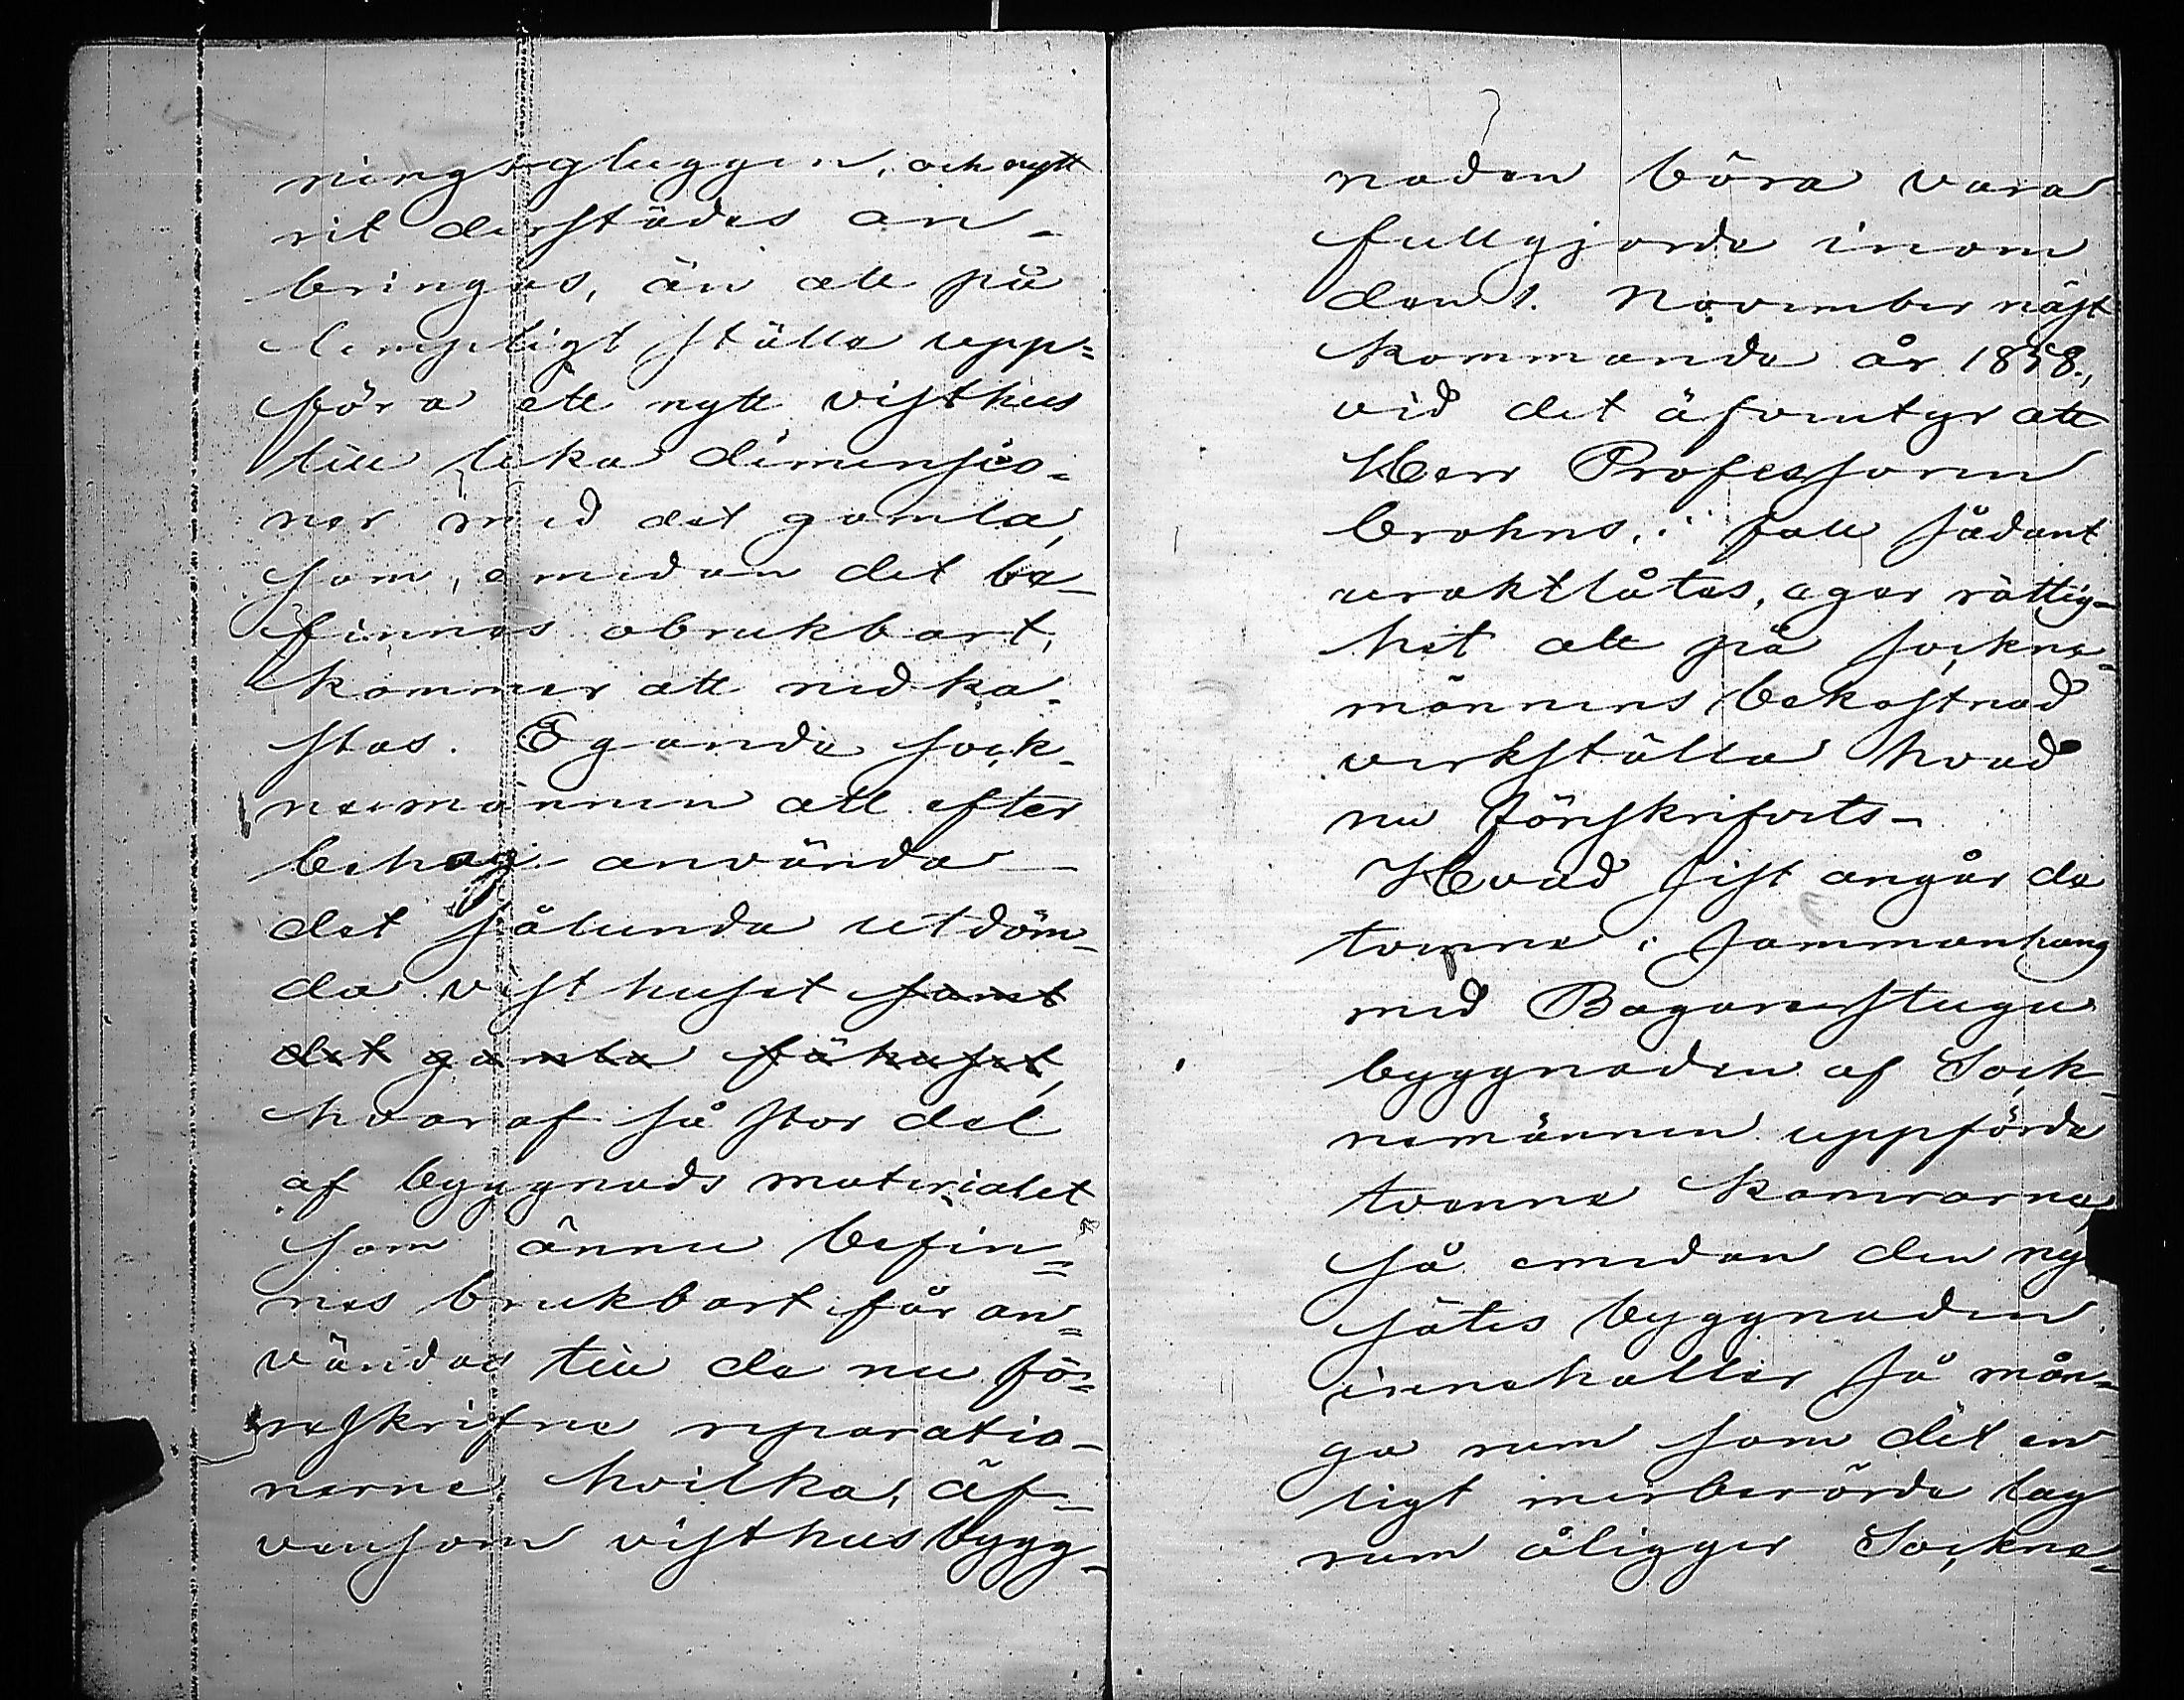 ningsgluggen, och nytt
rit derstädes an-
bringas, än att på
lempeligt ställe upp=
föra ett nytt visthus
till lika dimensio=
ner med det gamla,
som, emedan det be-
finnes obrukbart,
kommer att nedka-
stas. Egande sock-
nemännen att efter
behag använda
det sålunda utdöm-
da visthuset samt
det gamla fähuset,
hvaraf så stor del
af byggnads materialet
som ännu befin=
nes brukbart får an=
vändas till de nu fö=
reskrifne reparatio-
nerne hvilka, äf-
vensom visthusbygg-
naden böra vara
fullgjorde inom
den 1. November näst
kommande år 1858.,
vid det äfventyr att
Herr Professoren
Crohns, i fall sådant
uraktlåtes, eger rättig-
het att på sockne-
männens bekostnad
verkställa hvad
nu förskrifvits-
Hvad sist angår de
tvenne i sammanhang
med Bagarestugu
byggnaden af Sock-
nemännen uppförde
tvenne kamrarne,
så emedan den ny
sätes byggnaden
innehåller så mån=
ga rum som det en
ligt merberörde lag
rum åligger Sockne-